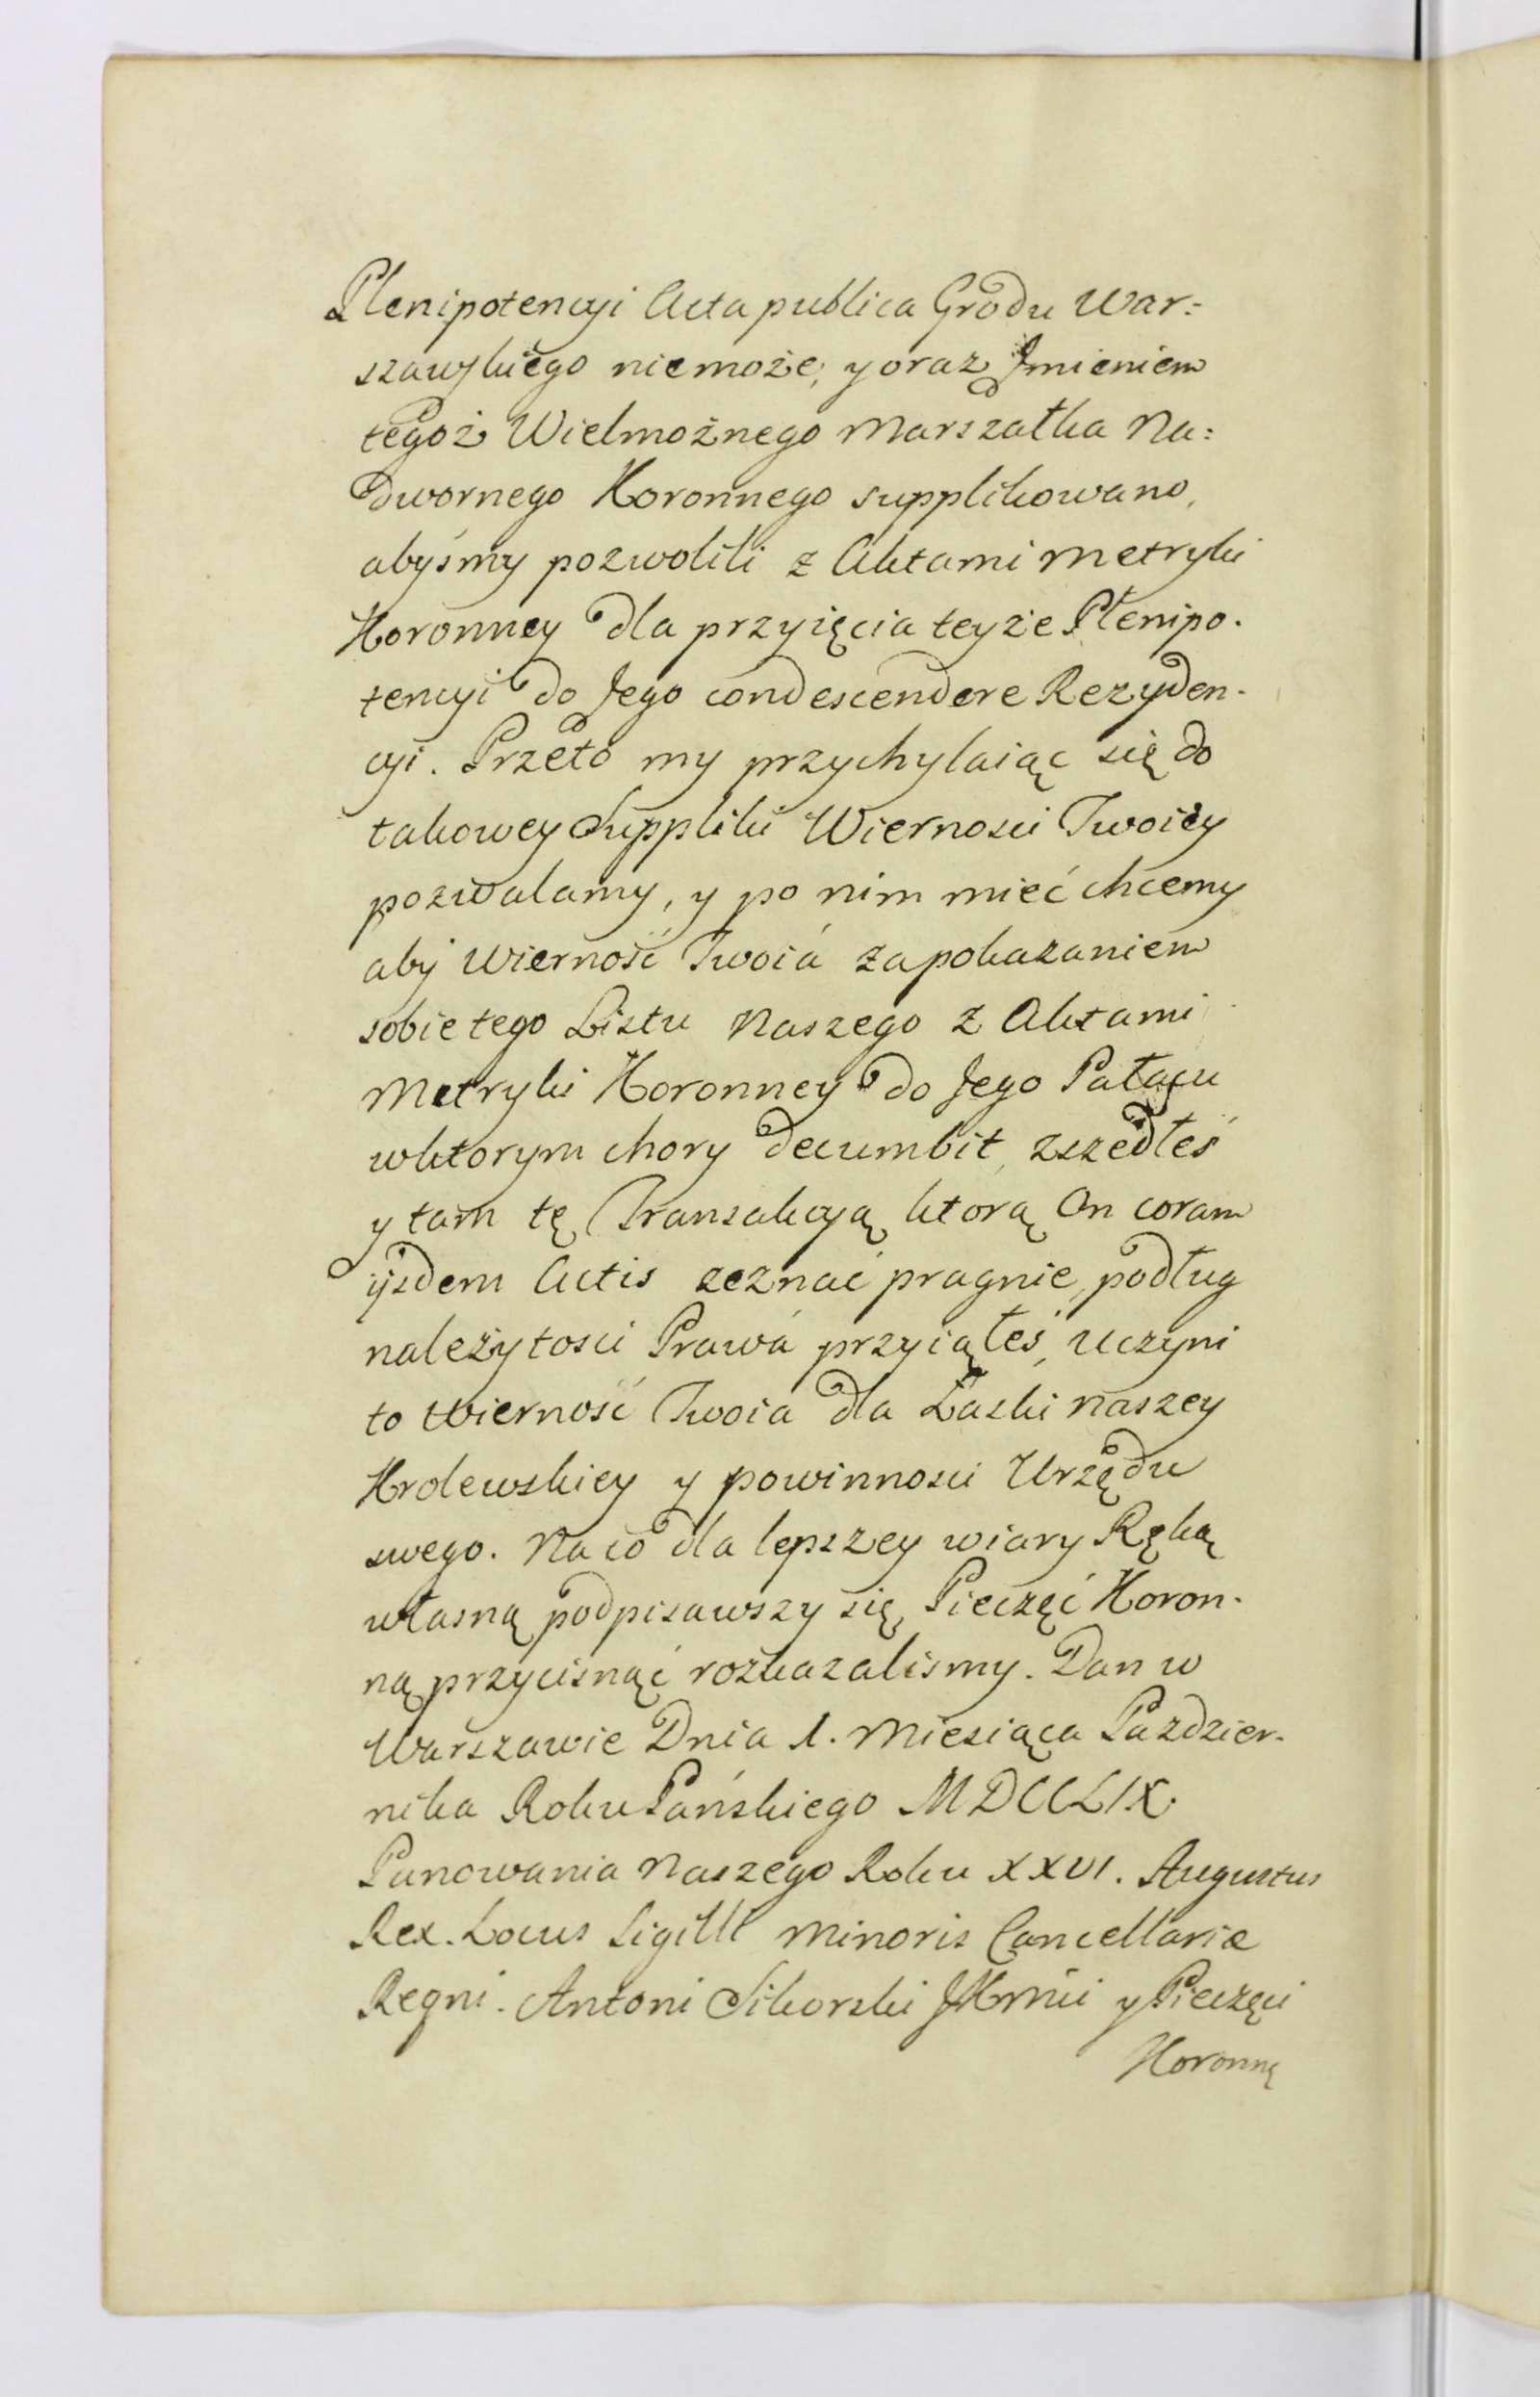 Plenipotencyi Acta publica Grodu War:
szawskiego niemoże, y oraz Jmieniem
tegoż Wielmożnego Marszałka Na:
dwornego Koronnego supplikowano,
abyśmy pozwolili z Aktami Metryki
Koronney dla przyięcia teyże Plenipo.
tencyi do Jego condescendere Rezyden-
cyi. Przeto my przychylaiąc się do
takowey Suppliki Wiernosci Twoiey
pozwalamy, y po nim mieć chcemy
aby Wierność Twoia za pokazaniem
sobie tego Listu Naszego z Aktami
Metryki Koronney do Jego Pałacu
w ktorym chory decumbit, zszedłeś
y tam tę Transakcyą ktorą On coram
ijsdem Actis zeznać pragnie, podług
należytosci Prawa przyiąłeś, Uczyni
to Wierność Twoia dla Łaski Naszey
Krolewskiey y powinnosci Urzędu
swego. Na co dla lepszey wiary Ręką
własną podpisawszy się, Pieczęć Koron.
ną przycisnąć rozkazalismy. Dan w
Warszawie Dnia 1. Miesiąca Pazdzier-
nika Roku Pańskiego MDCCLIX.
Panowania Naszego Roku XXVI. Augustus
Rex. Locus Sigilli Minoris Cancellariæ
Regni. Antoni Sikorski y Pieczęci
Koronny